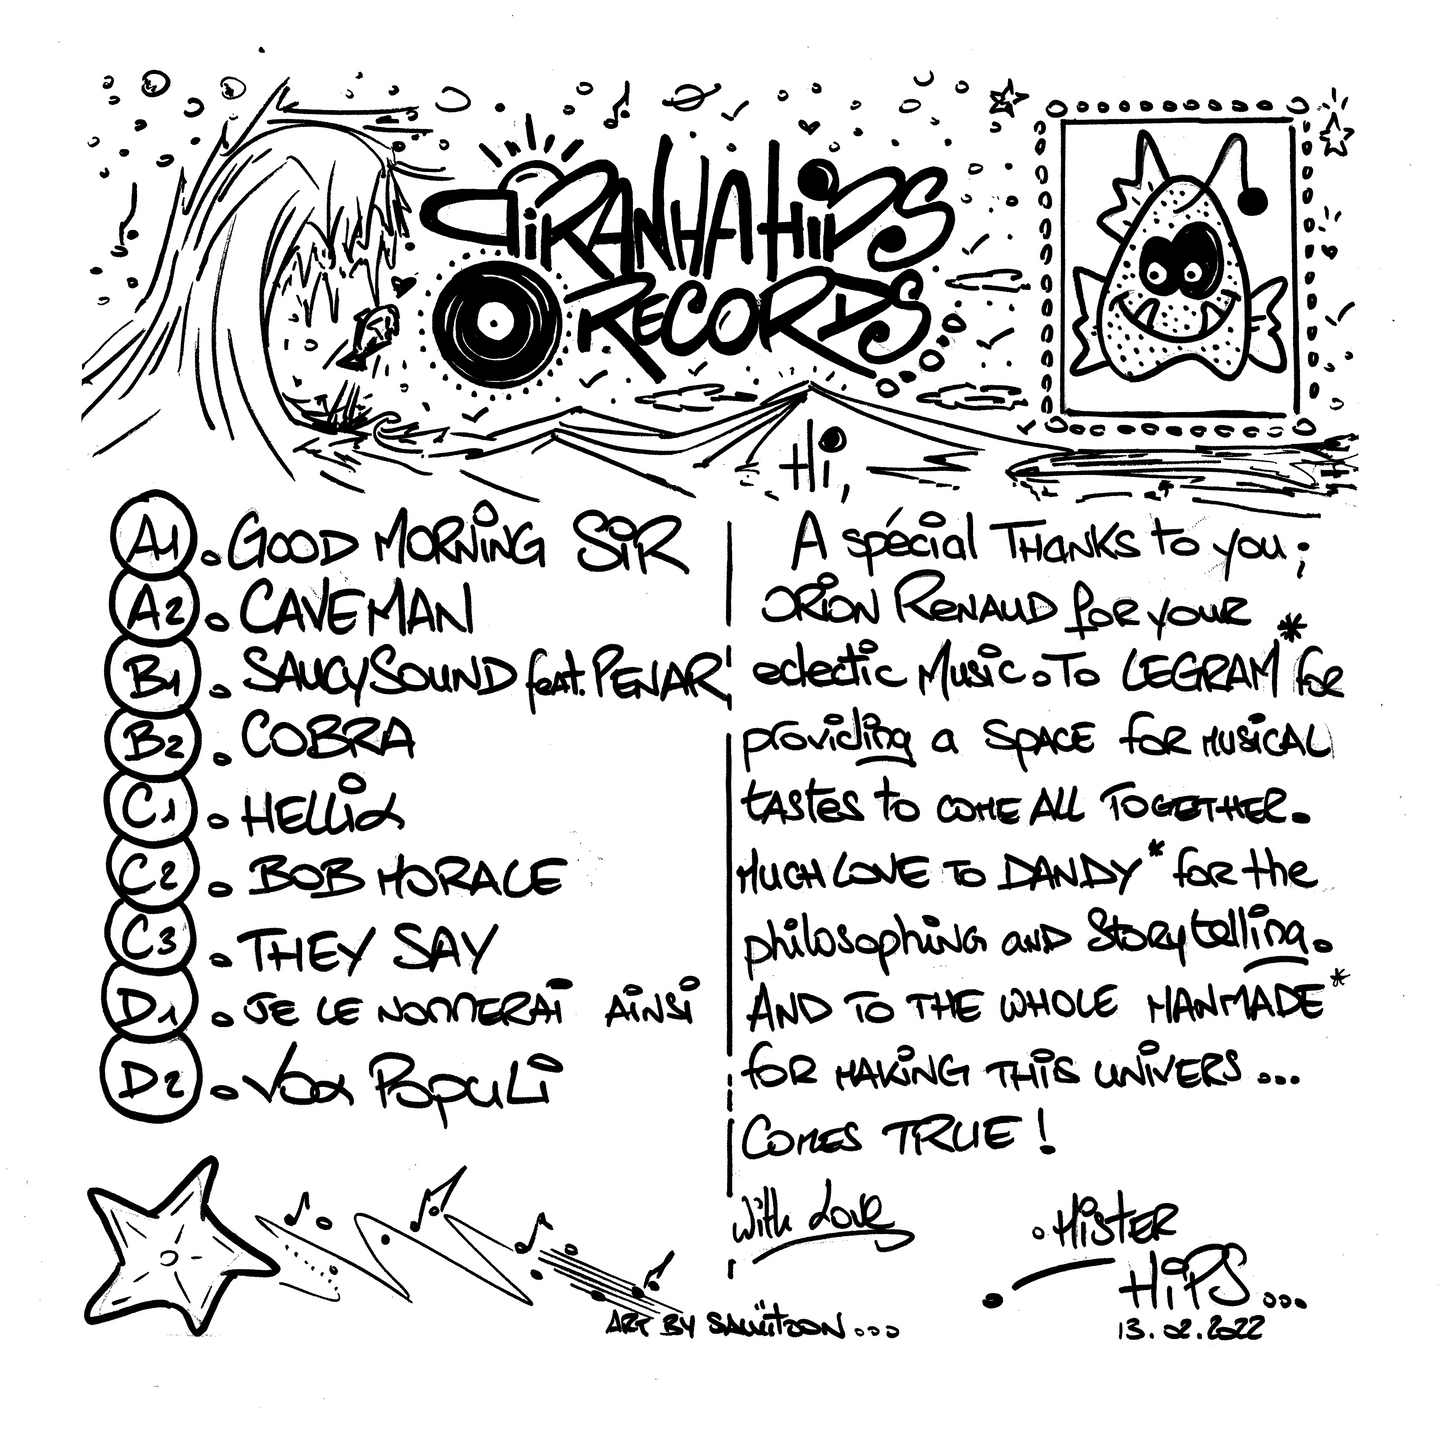 PiRANHA HiPS
RECORDS
Hi,
A1 . GOOD MORNiNG SiR
A2 . CAVEMAN
B1 . SAUCYSOUND feat. PENAR
B2 . COBRA
C1 . HELLix
C2 . BOB MORALE
C3 . THEY SAY
D1 . JE LE NOMMERAi AiNSi
D2 . Vox POpuLi
A spécial THANKS to you;
ORiON RENAUD for your
eclectic Music. To LEGRAM* for
providing a SPACE FOR MUSiCAL
tAStes to COME ALL TOGETHER.
MUCH LOVE TO DANDY* for the
philosophiNG AND Storytelling.
AND TO THE WHOLE MANMADE*
for MAKiNG THiS UNiVERS ...
COMES TRUE !
With Love
. MiSTER
HiPS...
13.02.2022
ART BY SAWiTOON...